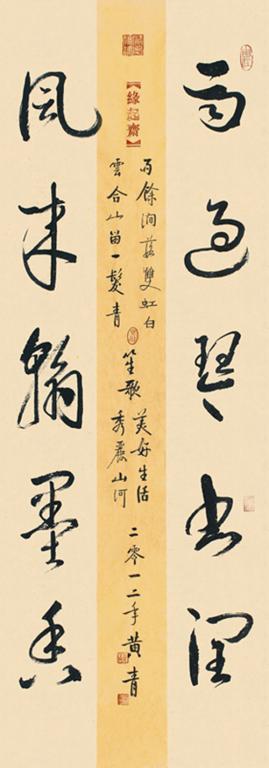 雨過琴書潤
風來翰墨香
【緣起齋】
雨餘澗落雙虹白
雲合山留一髮青
笙歌
美好生活
秀麗山河
二零一二年黃青